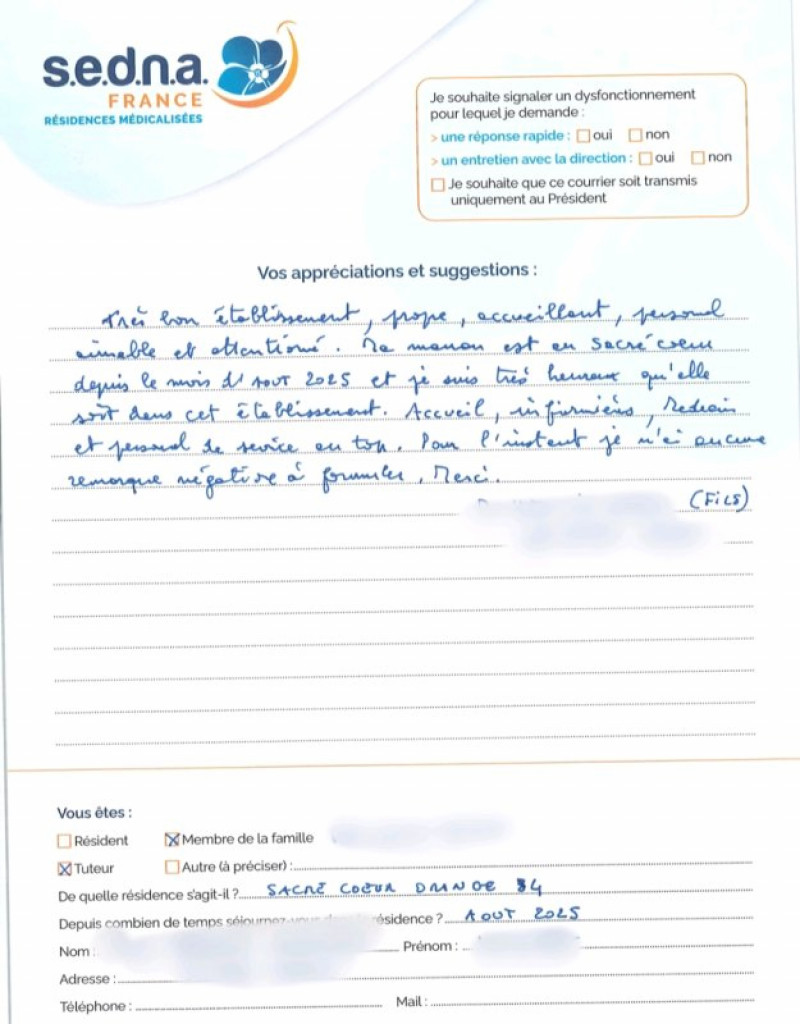 s.e.d.n.a.
FRANCE
RÉSIDENCES MÉDICALISÉES
Je souhaite signaler un dysfonctionnement
pour lequel je demande :
> une réponse rapide : oui non
> un entretien avec la direction : oui non
Je souhaite que ce courrier soit transmis
uniquement au Président
Vos appréciations et suggestions :
Très bon établissement, propre, accueillant, personnel
aimable et attentionné. Ma maman est au Sacré coeur
depuis le mois d'Aout 2025 et je suis très heureux qu'elle
soit dans cet établissement. Accueil, infirmières, Medecin
et personnel de service au top. Pour l'instant je n'ai aucune
remarque négative à formuler, Merci.
(FILS)
Vous êtes :
Résident Membre de la famille
Tuteur Autre (à préciser) :
De quelle résidence s'agit-il ? SACRÉ COEUR 84
Depuis combien de temps séjournez-vous résidence ? AOUT 2025
Nom : Prénom :
Adresse :
Téléphone : Mail :